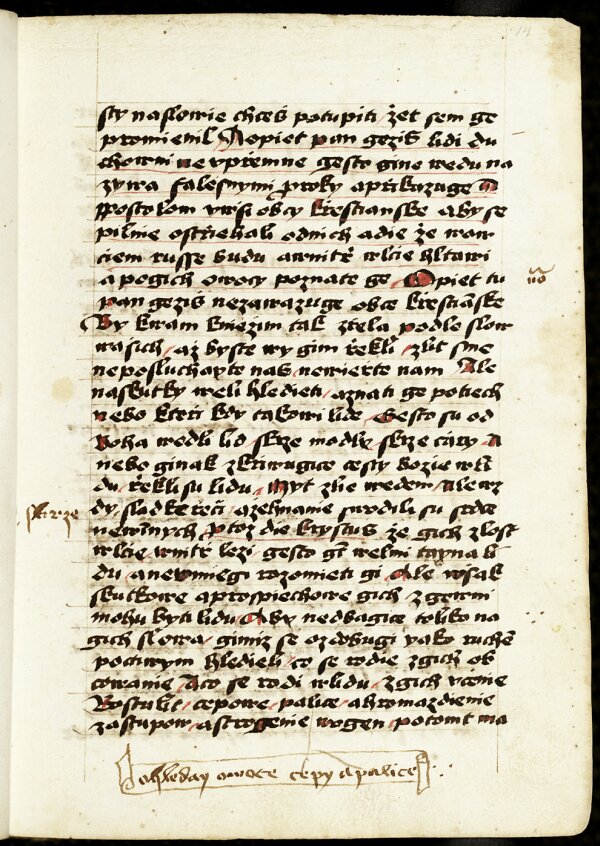 14
sty naslowie chces potupiti / żet sem ge
promienil / A opiet pan gezis lidi du
chowni ne vprzemne gesto gine wedu na
zywa falessnymi proky a przikazuge A
postolom y wssi obcy krzestianske aby se
pilnie ostrziehali od nich a die że wow
ciem russe budu a wnitrz wlcie hltawi
a po gich owocy poznate ge Opiet tu
pan gezis nezawazuge obce krzestianske
By kwam kniezim tak ztela podle slow
wasich / aż byste wy gim rzekli / zlit sme
neposluchayte nas / newierte nam / Ale
na skutky weli hledieti / a znati ge po tiech
nebo kterzi kdy takowi lide / gesto su od
boha wedli lid / skrze modly / skrze czary A
nebo ginak zkrziwugice cesty bozie w li
du / rzekli su lidu / Myt zlie wedem / Ale wz
dy sladke rzeczi / a żehnanie swodili su srdce
skrze
newinnych / protoz die krystus że gich zlost
wlcie wnitrz lezi gesto gt welmi tayna li
du / a newmiegi rozomieti gi / Ale wssak
skutkowe a prospiechowe gich z gewni
mohu byti lidu / Aby nedbagice toliko na
gich slowa / gimiz se ozdobugi yako ruchem
poctiwym hledieli / co se rodie z gich ob
cowanie / A co se rodi w lidu / z gich vcenie
Bostulit / cepowe / palice / a hromazdienie
zastupow / a strogenie wogen / potomt ma
ohleday owoce cepy a palice